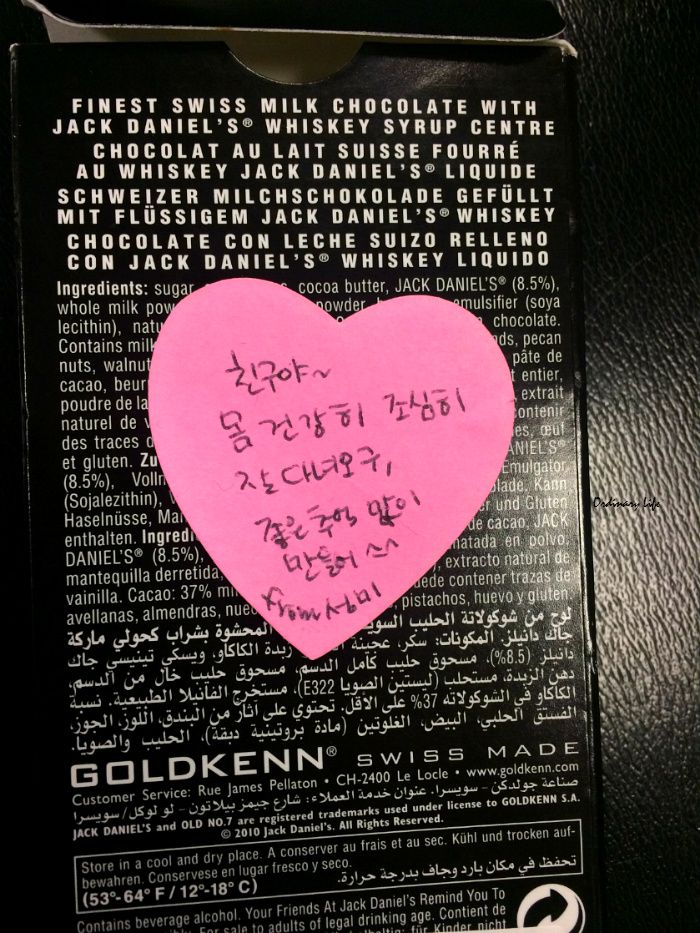 FINEST SWISS MILK CHOCOLATE WITH
JACK DANIEL'S® WHISKEY SYRUP CENTRE
CHOCOLAT AU LAIT SUISSE FOURRÉ
AU WHISKEY JACK DANIEL'S® LIQUIDE
SCHWEIZER MILCHSCHOKOLADE GEFÜLLT
MIT FLÜSSIGEM JACK DANIEL'S® WHISKEY
CHOCOLATE CON LECHE SUIZO RELLENO
CON JACK DANIEL'S® WHISKEY LIQUIDO
Ingredients: sugar cocoa butter, JACK DANIEL'S® (8.5%),
whole milk powder emulsifier (soya
lecithin), chocolate.
Contains pecan
nuts, pâte de
cacao, entier,
poudre de extrait
naturel de contenir
des traces œuf
et gluten.
(8.5%), Emulgator
(Sojalezithin), Kann
Haselnüsse, und Gluten
enthalten. de cacao, JACK
DANIEL'S® (8.5%), en polvo,
mantequilla derretida, extracto natural de
vainilla. Cacao: 37% contener trazas de
avellanas, almendras, pistachos, huevo y gluten.
친구야~
몸 건강히 조심히
잘 다녀오구,
좋은 추억 많이
만들어
from
لوح من شوكولاتة الحليب المحشوة بشراب كحولي ماركة
جاك دانيلز. المكونات: سكر، عجينة زبدة الكاكاو، ويسكي تينيسي جاك
دانيلز (8.5%)، مسحوق حليب كامل الدسم، مسحوق حليب خال من الدسم،
دهن الزبدة، مستحلب (ليسيتين الصويا E322)، مستخرج الفانيلا الطبيعية. نسبة
الكاكاو في الشوكولاته 37% على الأقل. تحتوي على آثار من البندق، اللوز، الجوز،
الفستق الحلبي، البيض، الغلوتين (مادة بروتينية دبقة)، الحليب والصويا.
GOLDKENN® SWISS MADE
Customer Service: Rue James Pellaton • CH-2400 Le Locle • www.goldkenn.com
صناعة جولدكن - سويسرا. عنوان خدمة العملاء: شارع جيمز بيلاتون - لو لوكل/سويسرا
JACK DANIEL'S and OLD NO.7 are registered trademarks used under license to GOLDKENN S.A.
© 2010 Jack Daniel's. All Rights Reserved.
Store in a cool and dry place. A conserver au frais et au sec. Kühl und trocken auf-
bewahren. Conservese en lugar fresco y seco.
تحفظ في مكان بارد وجاف بدرجة حرارة.
(53°-64° F / 12°-18° C)
Contains beverage alcohol. Your Friends At Jack Daniel's Remind You To
For sale to adults of legal drinking age. Contient de
Ordinary Life